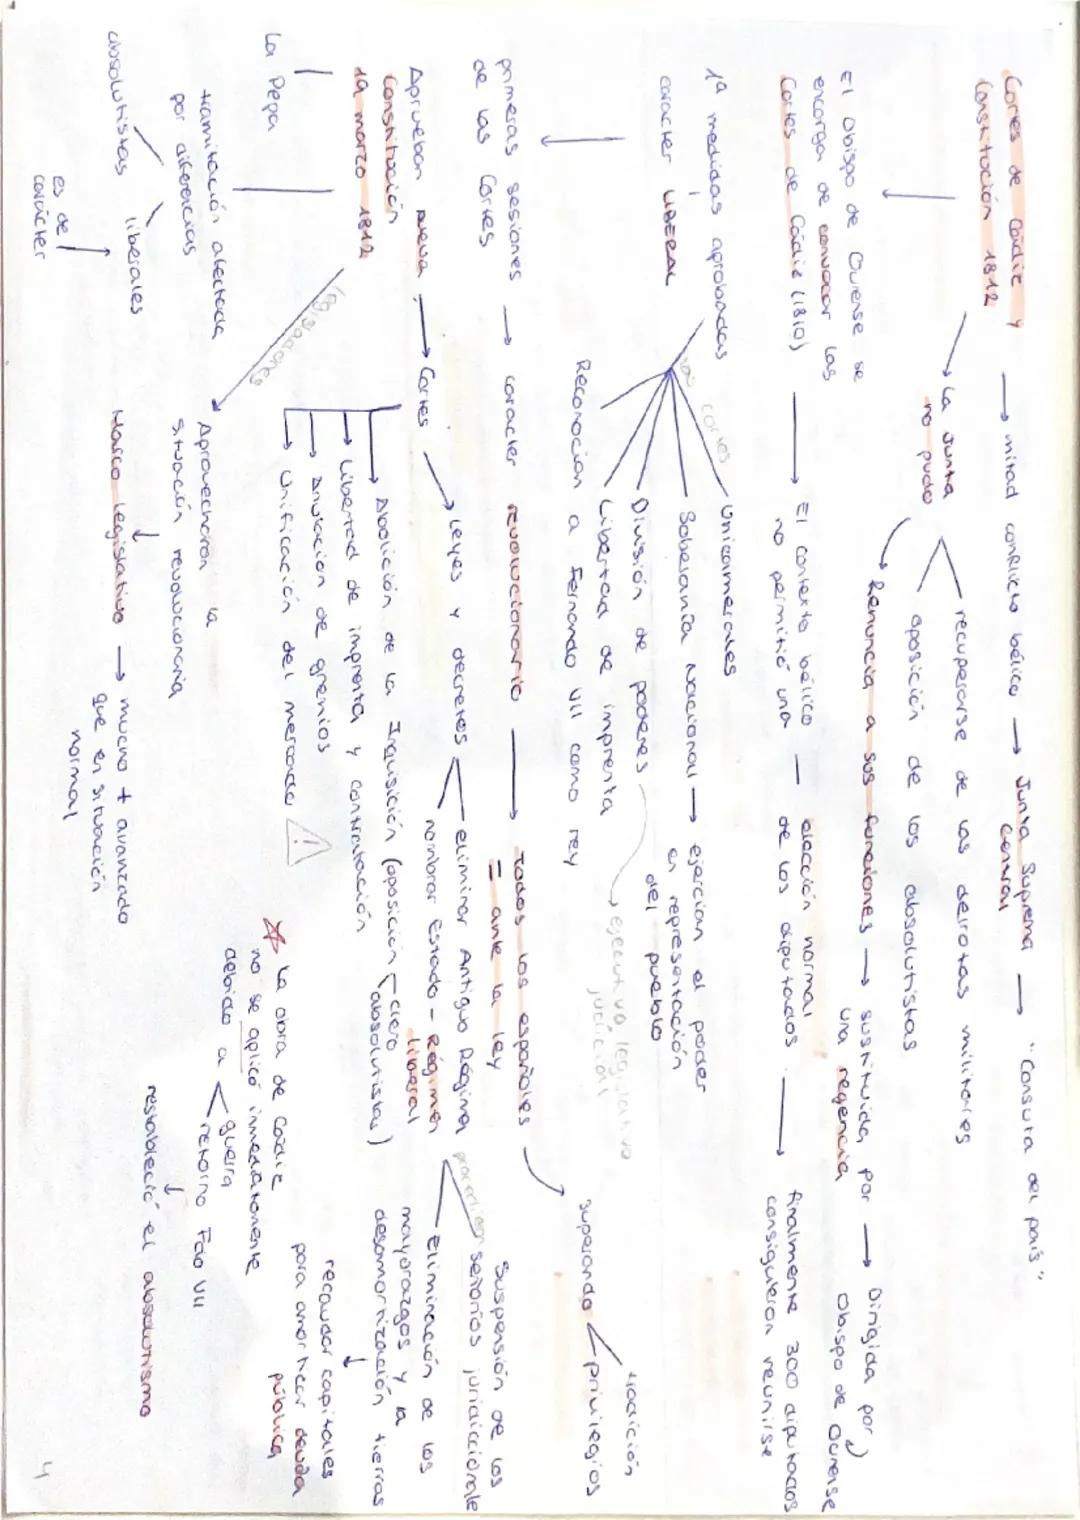 Cortes de Cádiz y
Constitución 1812
mitad conflicto bélico → Junta Suprema
Central
→ "Consulta del país"
La Junta
no pudo
recuperarse de las derrotas militares
oposición de los absolutistas
Renuncia a sus funciones → sustituida por
una regencia
→ Dirigida por
Obispo de Ourense
El Obispo de Ourense se
encarga de convocar las
Cortes de Cádiz (1810)
El contexto bélico
no permitió una
elección normal
de los diputados
finalmente 300 diputados
consiguieron reunirse
1ª medidas aprobadas
carácter LIBERAL
las cortes
Unicamerales
Soberanía Nacional → ejercían el poder
en representación
del pueblo
División de poderes
ejecutivo legislativo
judicial
Libertad de imprenta
Reconocían a Fernando VII como rey
primeras sesiones
de las Cortes
→ carácter revolucionario
Todos los españoles
= ante la ley
superando
tradición
privilegios
Aprueban nueva
Constitución
19 marzo 1812
→ Cortes
Leyes y decretos
eliminar Antiguo Régimen
nombrar Estado - Régimen
liberal
Suspensión de los
señoríos jurisdiccionale
Eliminación de los
mayorazgos y la
desamortización tierras
recaudar capitales
para amortizar deuda
pública
legislaciones
Abolición de la Inquisición (oposición
clero
absolutistas)
Libertad de imprenta y contratación
Anulación de gremios
Unificación del mercado
!
La Pepa
tramitación afectada
por diferencias
absolutistas
liberales
es de
carácter
Aprovecharon la
situación revolucionaria
Marco legislativo → mucho + avanzado
que en situación
normal
La obra de Cádiz
no se aplicó inmediatamente
debido a
guerra
retorno Fdo VII
restableció el absolutismo
4